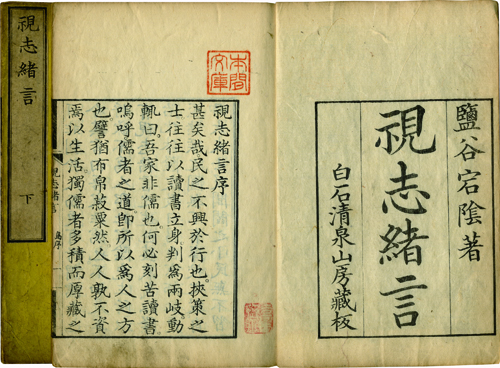 鹽谷宕陰著
視志緒言
白石清泉山房藏板
本間
文庫
視志緒言序
甚矣哉民之不興於行也挾策之
士往往以讀書立身判爲兩岐動
輙曰吾家非儒也何必刻苦讀書
嗚呼儒者之道卽所以爲人之方
也譬猶布帛菽粟然人人孰不資
焉以生活獨儒者多積而厚藏之
視志緒言
視志緒言 下